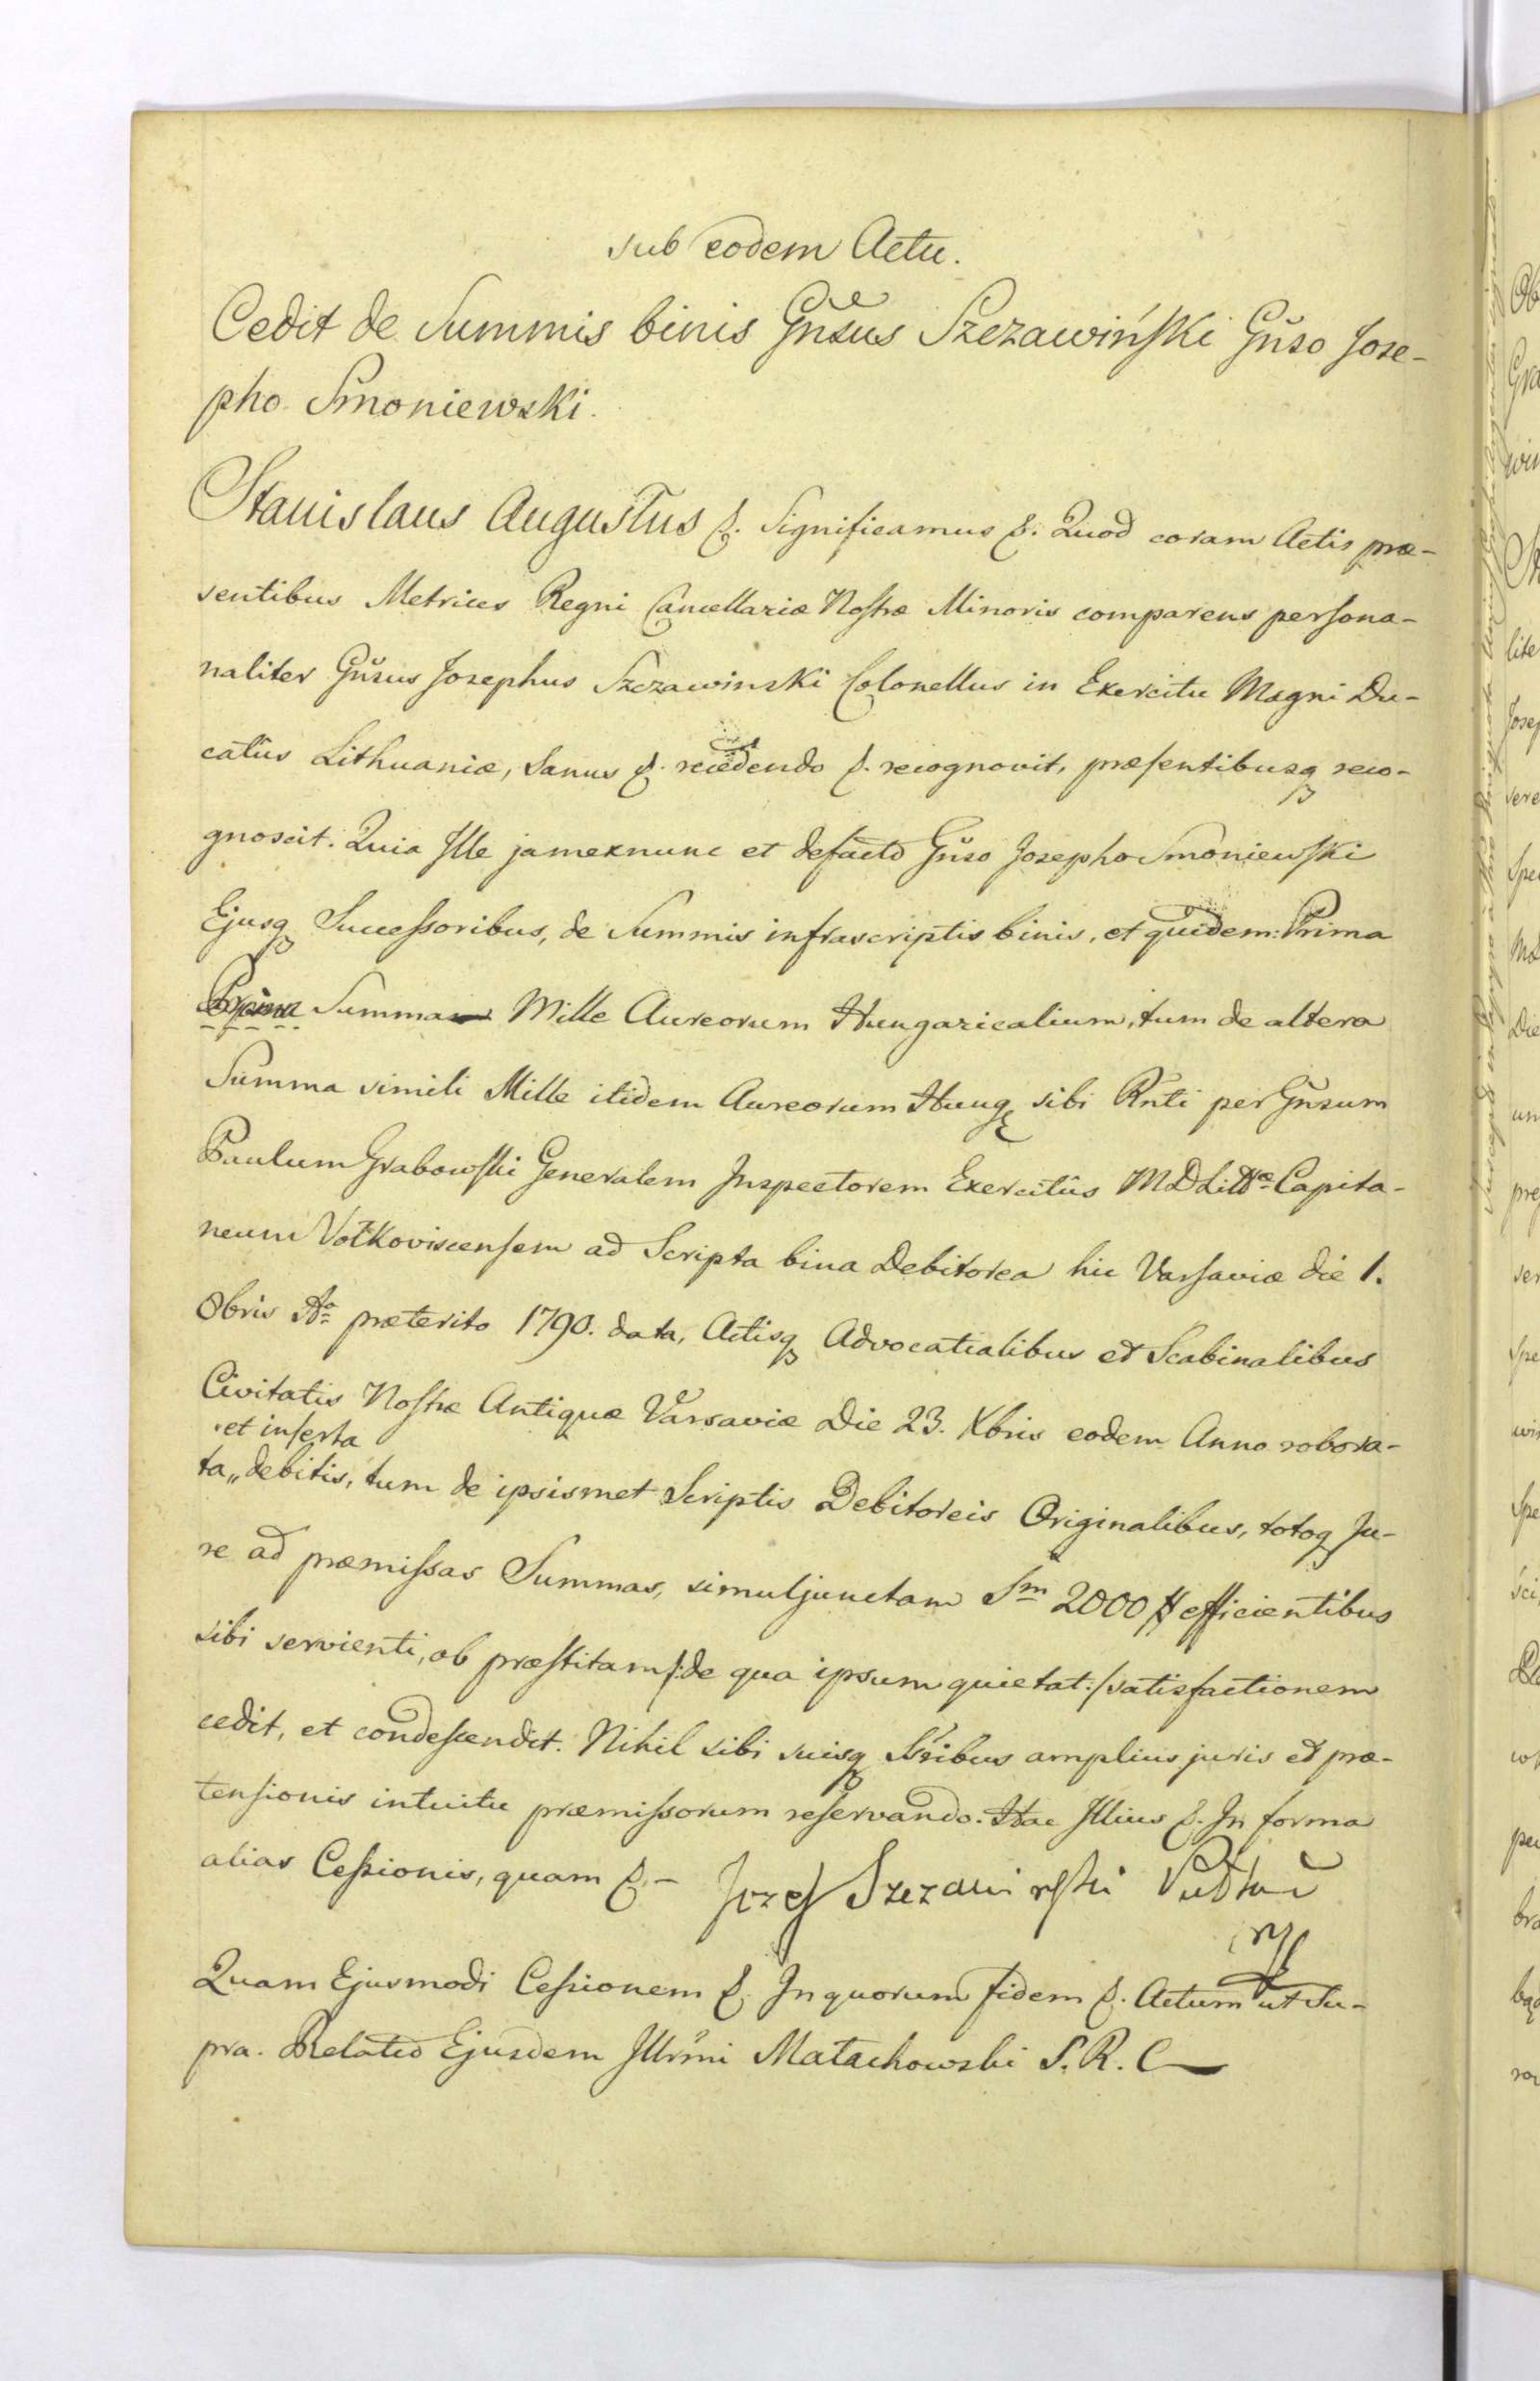 sub eodem Actu.
Cedit de Summis binis Gn̆sus Szczawiński Gn̆so Jose-
pho Smoniewski.
Stanislaus Augustus &. Significamus &. Quod coram Actis præ-
sentibus Metrices Regni Cancellariæ Nostræ Minoris comparens persona-
naliter Gn̆sus Josephus Szczawinski Colonellus in Exercitu Magni Du-
catûs Lithuaniæ, Sanus &. recedendo &. recognovit, præsentibusq reco-
gnoscit. Quia Ille jamexnunc et defacto Gn̆so Josepho Smoniewski
Ejusq Successoribus, de Summis infrascriptis binis, et quidem: Prima
Summa Mille Aureorum Hungaricalium, tum de altera
Summa simili Mille itidem Aureorum Hung sibi Rn̆ti per Gn̆sum
Paulum Grabowski Generalem Inspectorem Exercitûs MDLittæ Capita-
neum Vołkoviscensem ad Scripta bina Debitorea hic Varsaviæ die 1.
8bris Aº præterito 1790. data, Actisq Advocatialibus et Scabinalibus
Civitatis Nostræ Antiquæ Varsaviæ Die 23. Xbris eodem Anno robora-
et inserta
ta,, debitis, tum de ipsismet Scriptis Debitoreis Originalibus, totoq Ju-
re ad præmissas Summas, simuljunctam Sm 2000 # efficientibus
sibi servienti, ob præstitam /: de qua ipsum quietat :/ satisfactionem
cedit, et condescendit. Nihil sibi suisq Ss̆ribus amplius juris et præ-
tensionis intuitu præmissorum reservando. Hac Illius &. In forma
alias Cessionis, quam &.-
Jozef Szczawinski
Quam Ejusmodi Cessionem &. In quorum fidem &. Actum ut Su-
pra. Relatio Ejusdem Illr̆mi Małachowski S. R. C